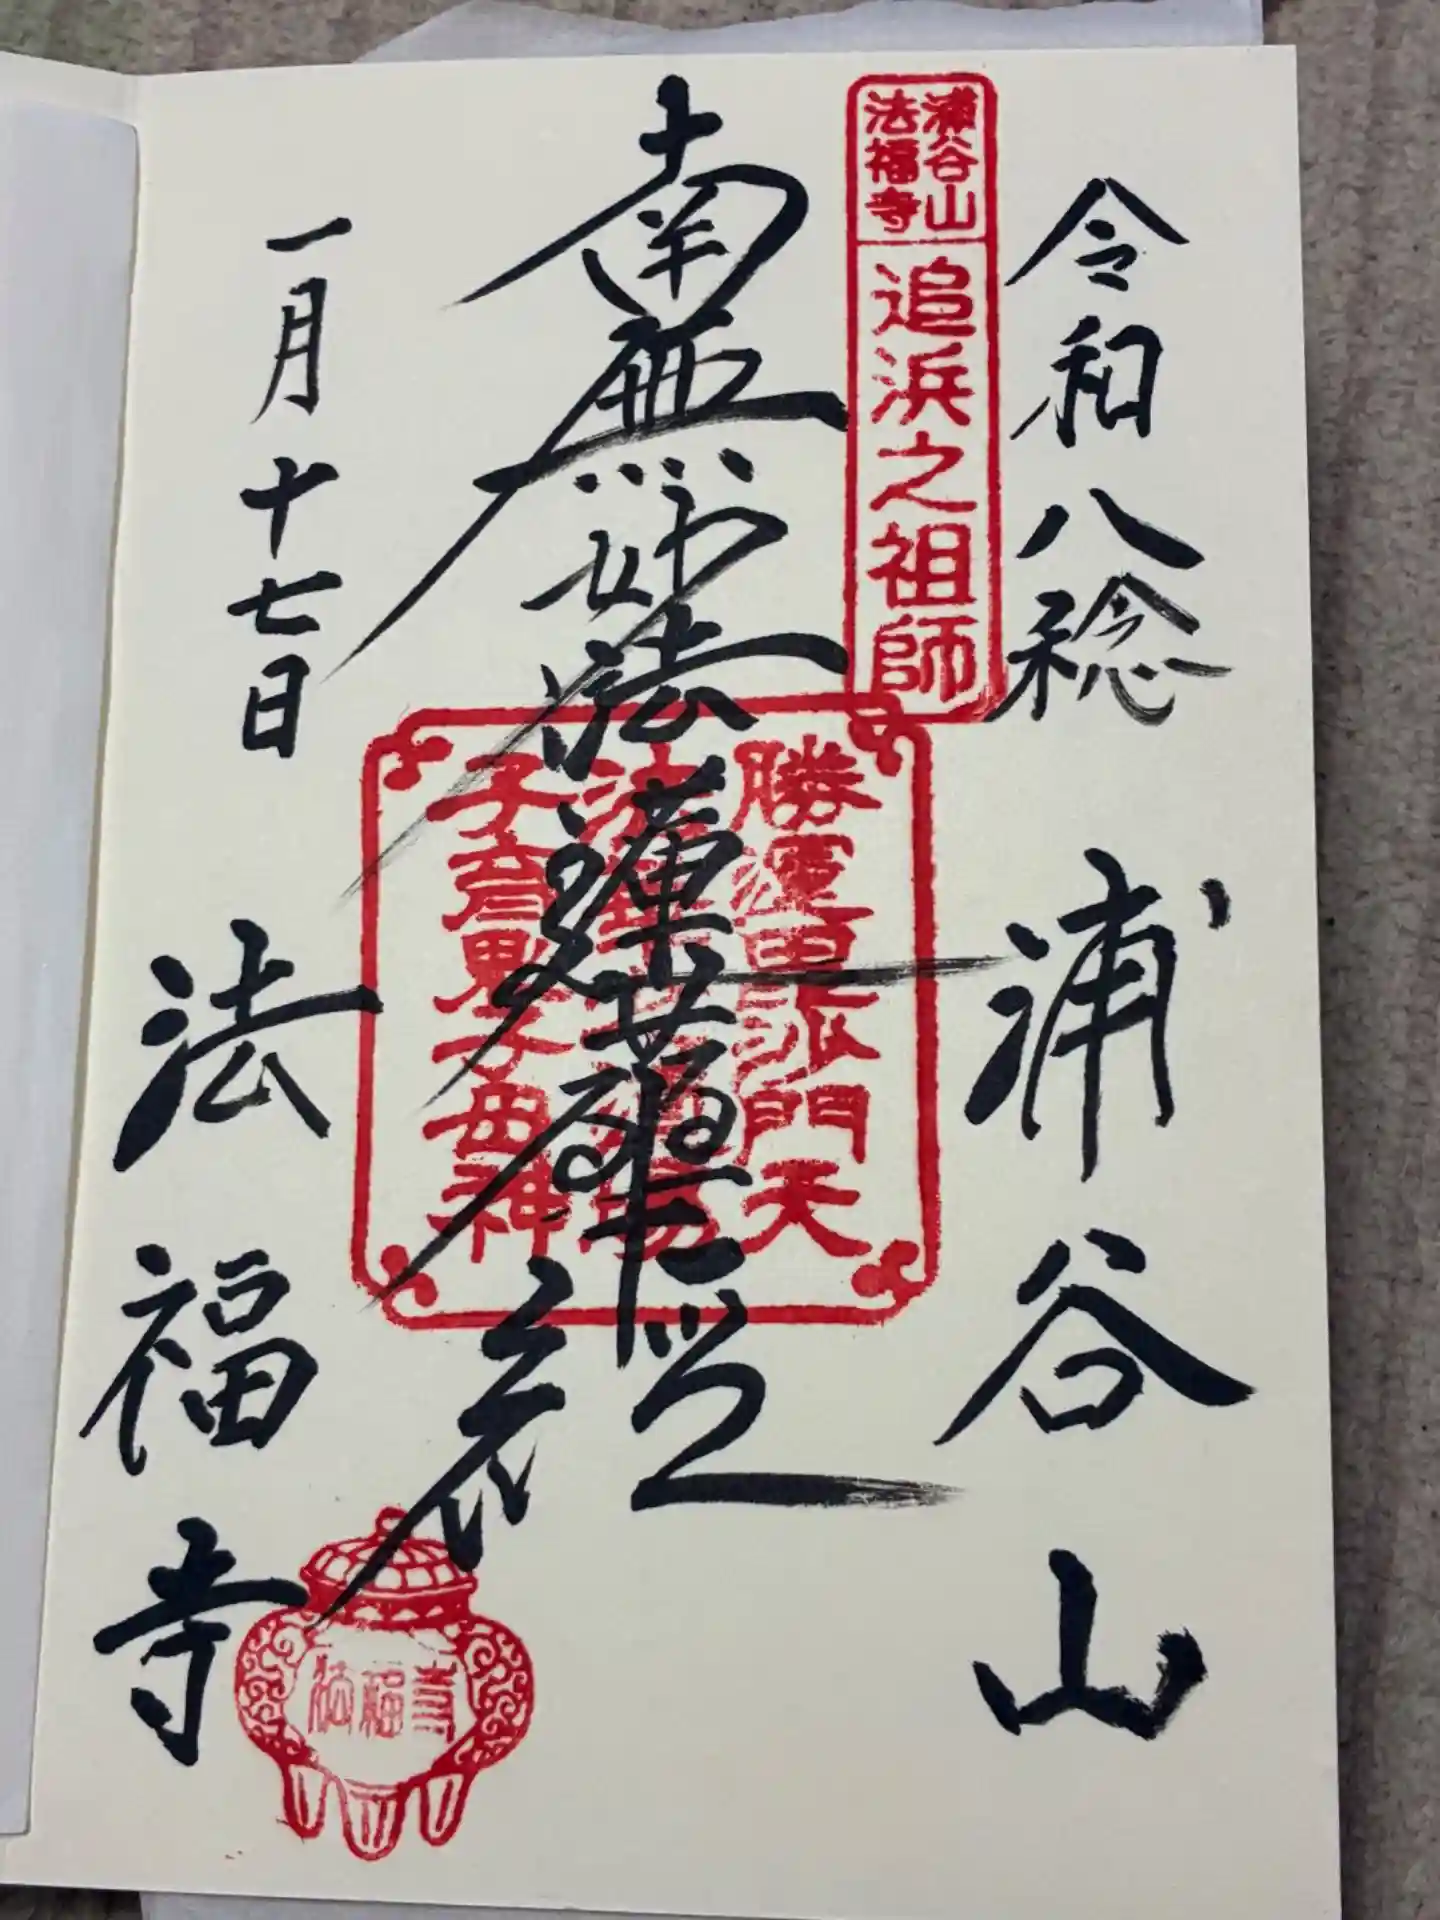 令和八稔
浦谷山
浦谷山
法福寺
追浜之祖師
南無妙法蓮華経
勝運毘沙門天
子育鬼子母神
一月十七日
法福寺
法福寺